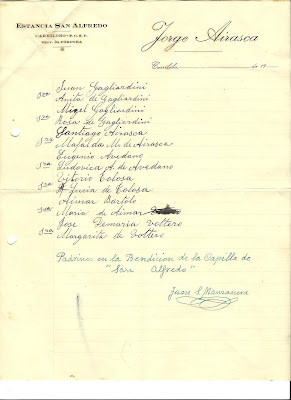 ESTANCIA SAN ALFREDO
CARRILOBO - F.C.C.A.
PROV. DE CÓRDOBA
Jorge Airasca
de 19
Juan Gagliardini
Sra Anita de Gagliardini
Miguel Gagliardini
Sra Rosa de Gagliardini
Santiago Airasca
Sra Mafalda M. de Airasca
Eugenio Avedano
Sra Ludovica A. de Avedano
Vitorio Colosa
Sra Lucia de Colosa
Aimar Bartolo
Sra Maria de Aimar
Jose Demaria Voltero
Sra Margarita de Voltero
Padrino en la Bendicion de la Capilla de
"San Alfredo"
Juan S. Manzanera